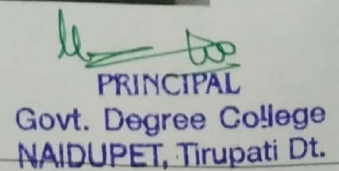 PRINCIPAL
Govt. Degree College
NAIDUPET, Tirupati Dt.